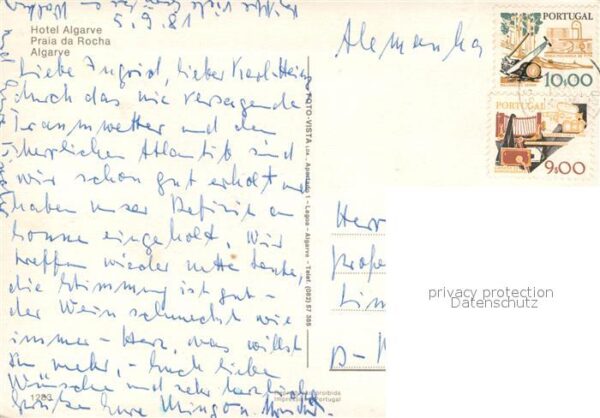 5.9.81
Hotel Algarve
Praia da Rocha
Algarve
Liebe Ingrid, lieber Karl-Heinz
durch das nie versagende
Traumwetter und den
herrlichen Atlantik sind
wir schon gut erholt u
haben unser Defizit an
Sonne eingeholt. Wir
treffen wieder nette Leute,
die Stimmung ist gut –
der Wein schmeckt wie
immer – Herz, was willst
Du mehr, – Euch liebe
Wünsche und sehr herzliche
Grüße Eure
1283
FOTO-VISTA LDA. Apartado 1 - Lagoa - Algarve - Telef. (082) 57 365
Impresso em Portugal
Alemanha
PORTUGAL
10$00
PORTUGAL
9$00
Herr
Profe
Lin
D-
privacy protection
Datenschutz